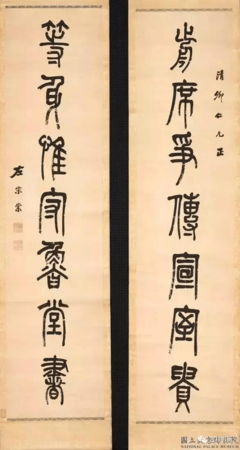 清卿仁兄正
前席爭傳宣室貴
等身惟守魯堂書
左宗棠
國立故宮博物院
NATIONAL PALACE MUSEUM